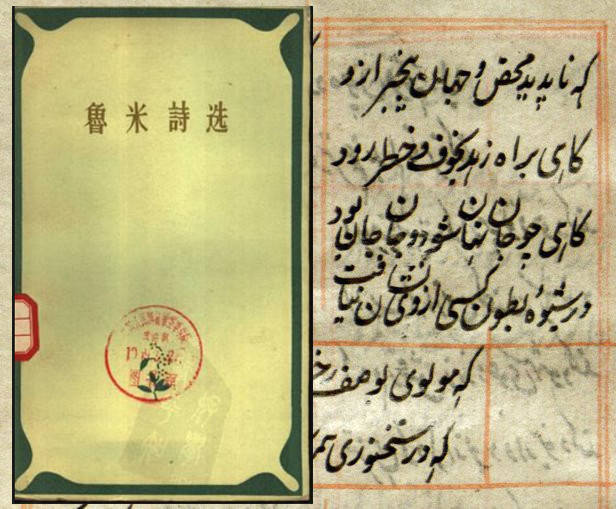 魯米詩选
که ناپدید محض و جهان بیخبر ازو
کاهی براه زهد بخوف و خطر رود
کاهی چو جان نهان شود و جان جان بود
در شیوهٔ بطون کسی از وی نشان نیافت
که مولوی بوصف
که در سخنوری